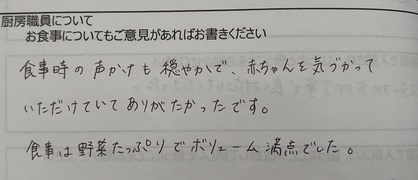 厨房職員について
お食事についてもご意見があればお書きください
食事時の声かけも穏やかで、赤ちゃんを気づかって
いただけていてありがたかったです。
食事は野菜たっぷりでボリューム満点でした。